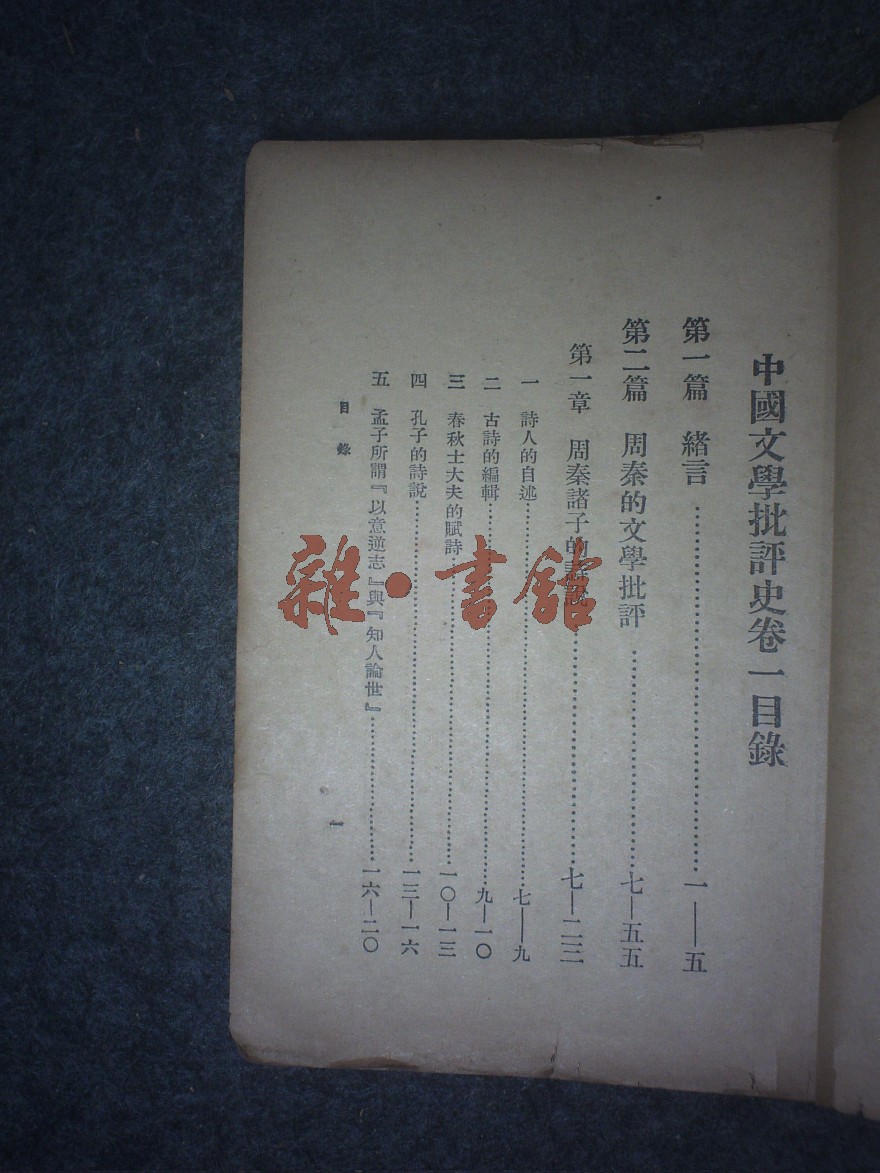 中國文學批評史卷一目錄
第一篇 緒言……一——五
第二篇 周秦的文學批評……七—五五
第一章 周秦諸子的詩說……七—二三
一 詩人的自述……七——九
二 古詩的編輯……九—一〇
三 春秋士大夫的賦詩……一〇—一三
四 孔子的詩說……一三—一六
五 孟子所謂『以意逆志』與『知人論世』……一六—二〇
目錄
一
雜·書館